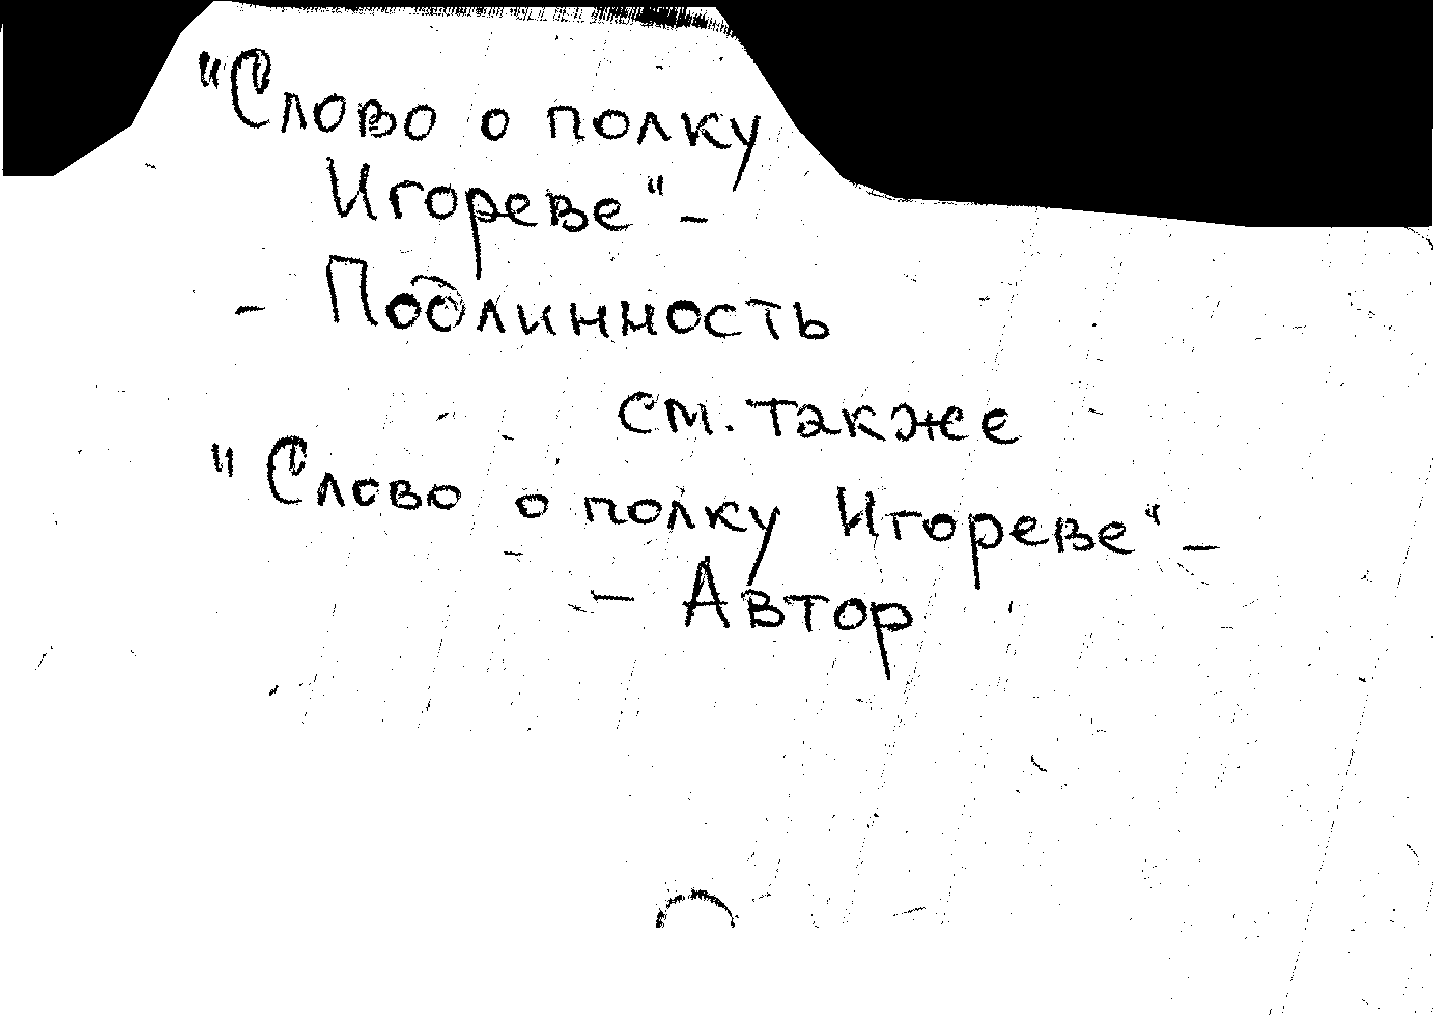 "Слово о полку
Игореве" -
- Подлинность
см. также
"Слово о полку Игореве" -
- Автор